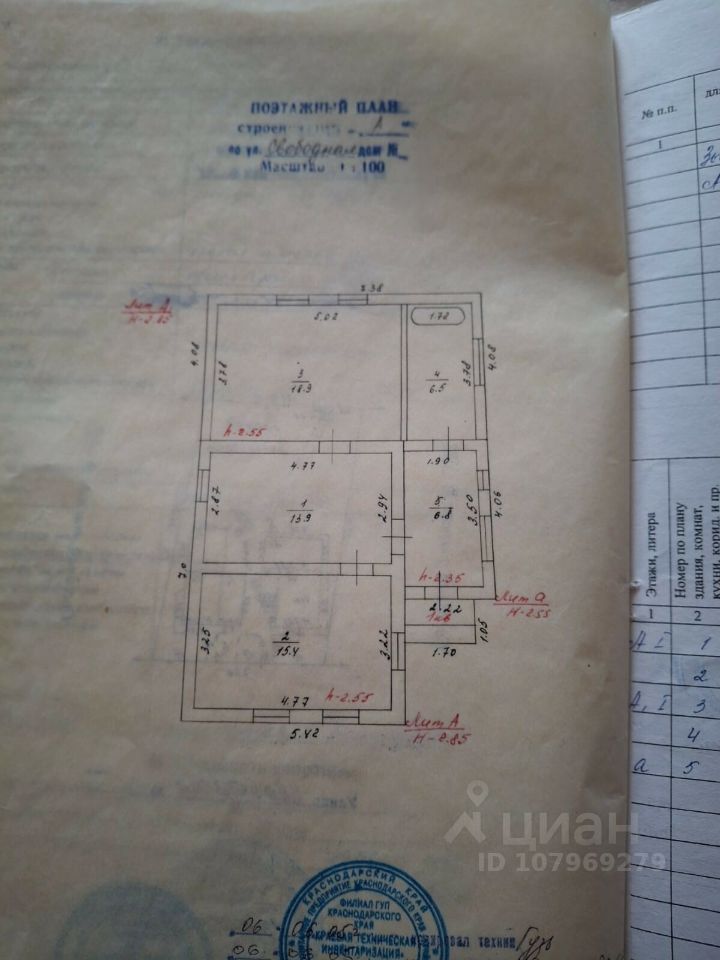 ПОЭТАЖНЫЙ ПЛАН
строен А
по ул. Свободная дом №
Масштаб 1:100
№ п.п.
1
Лит А
H-2.85
5.02
1.78
4.08
3.78
3
18.9
4
6.5
3.78
4.08
h-2.55
4.77
1.90
2.87
1
13.9
2.94
5
6.8
3.50
4.06
h-2.35
2.22
Лит а
H-2.55
7.0
3.25
2
15.4
3.22
1.70
1.05
4.77
h-2.55
5.42
Лит А
H-2.85
Этажи, литера
Номер по плану
здания, комнат,
кухни, корид. и пр.
1 2
А I 1
2
А, I 3
4
а 5
циан
ID 107969279
КРАСНОДАРСКИЙ КРАЙ
ПРЕДПРИЯТИЕ КРАСНОДАРСКОГО КРАЯ
ФИЛИАЛ ГУП
КРАСНОДАРСКОГО
КРАЯ
"КРАЕВАЯ ТЕХНИЧЕСКАЯ
ИНВЕНТАРИЗАЦИЯ"
06
06
техник